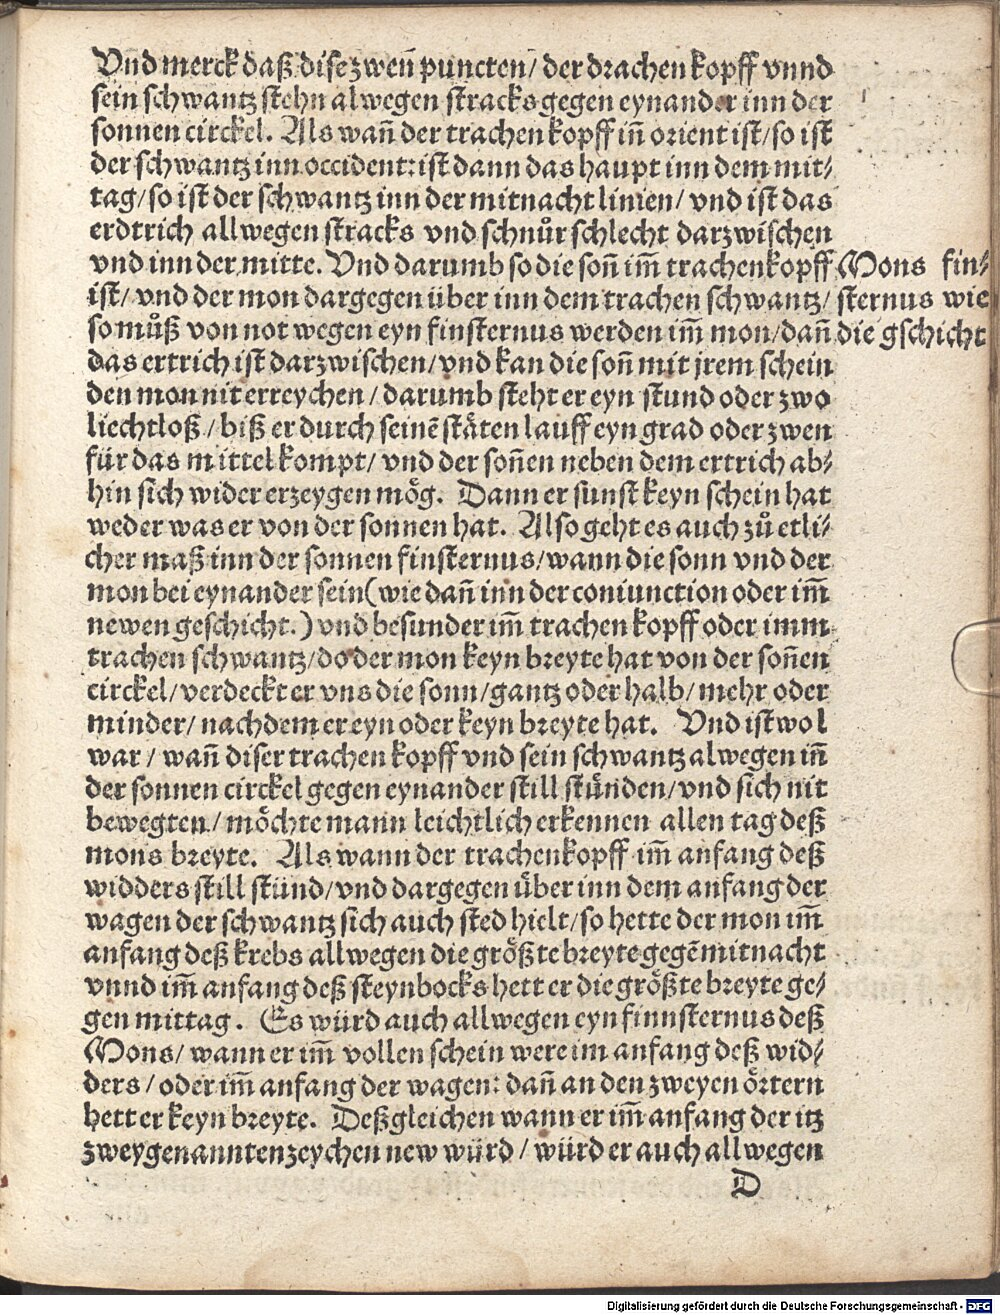 Vnd merck daß dise zwen̄ puncten/ der drachen kopff vnnd
sein schwantz stehn alwegen stracks gegen eynander inn der
sonnen circkel. Als wan̄ der trachen kopff in̄ orient ist/ so ist
der schwantz inn occident: ist dann das haupt inn dem mit⸗
tag/ so ist der schwantz inn der mitnacht linien/ vnd ist das
erdtrich allwegen stracks vnd schnůr schlecht darzwischen
vnd inn der mitte. Vnd darumb so die son̄ im̄ trachenkopff
ist/ vnd der mon dargegen über inn dem trachen schwantz/
so můß von not wegen eyn finsternus werden im̄ mon/ dan̄
das ertrich ist darzwischen/ vnd kan die son̄ mit jrem schein
den mon nit erreychen/ darumb steht er eyn stund oder zwo
liechtloß/ biß er durch seinē stäten lauff eyn grad oder zwen
für das mittel kompt/ vnd der son̄en neben dem ertrich ab⸗
hin sich wider erzeygen mög. Dann er sunst keyn schein hat
weder was er von der sonnen hat. Also geht es auch zů etli⸗
cher maß inn der sonnen finsternus/ wann die sonn vnd der
mon bei eynander sein (wie dan̄ inn der coniunction oder im̄
newen geschicht.) vnd besunder im̄ trachen kopff oder imm
trachen schwantz/ do der mon keyn breyte hat von der son̄en
circkel/ verdeckt er vns die sonn/ gantz oder halb/ mehr oder
minder/ nach dem er eyn oder keyn breyte hat. Vnd ist wol
war/ wan̄ diser trachen kopff vnd sein schwantz alwegen in̄
der sonnen circkel gegen eynander still stünden/ vnd sich nit
bewegten/ möchte mann leichtlich erkennen allen tag deß
mons breyte. Als wann der trachenkopff im̄ anfang deß
widders still stünd/ vnd dargegen über inn dem anfang der
wagen der schwantz sich auch sted hielt/ so hette der mon im̄
anfang deß krebs allwegen die größte breyte gegē mitnacht
vnnd im̄ anfang deß steynbocks hett er die größte breyte ge⸗
gen mittag. Es würd auch allwegen eyn finnsternus deß
Mons/ wann er im̄ vollen schein were im anfang deß wid⸗
ders/ oder im̄ anfang der wagen: dan̄ an den zweyen örtern
hett er keyn breyte. Deßgleichen wann er im̄ anfang der itz
zwey genannten zeychen new würd/ würd er auch allwegen
D
Mons fin⸗
sternus wie
die gschicht
Digitalisierung gefördert durch die Deutsche Forschungsgemeinschaft - DFG